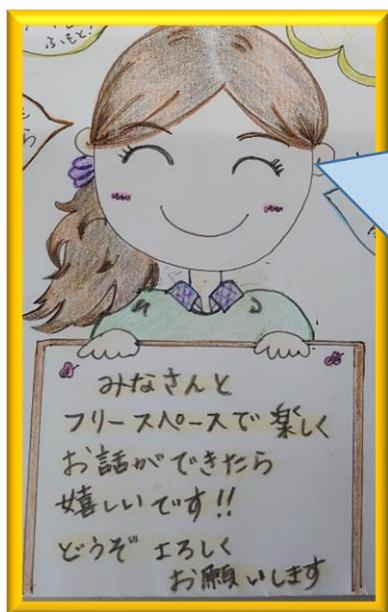 ふもと!
ら
みなさんと
フリースペースで楽しく
お話ができたら
嬉しいです!!
どうぞよろしく
お願いします